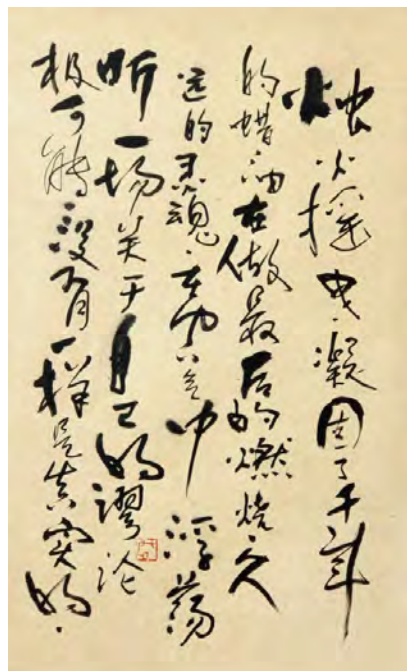 烛火摇曳.凝固了千载
的蜡油在做最后的燃烧久
远的灵魂.在空气中浮荡
听一场关于自己的谬论
极可能没有一样是真实的.